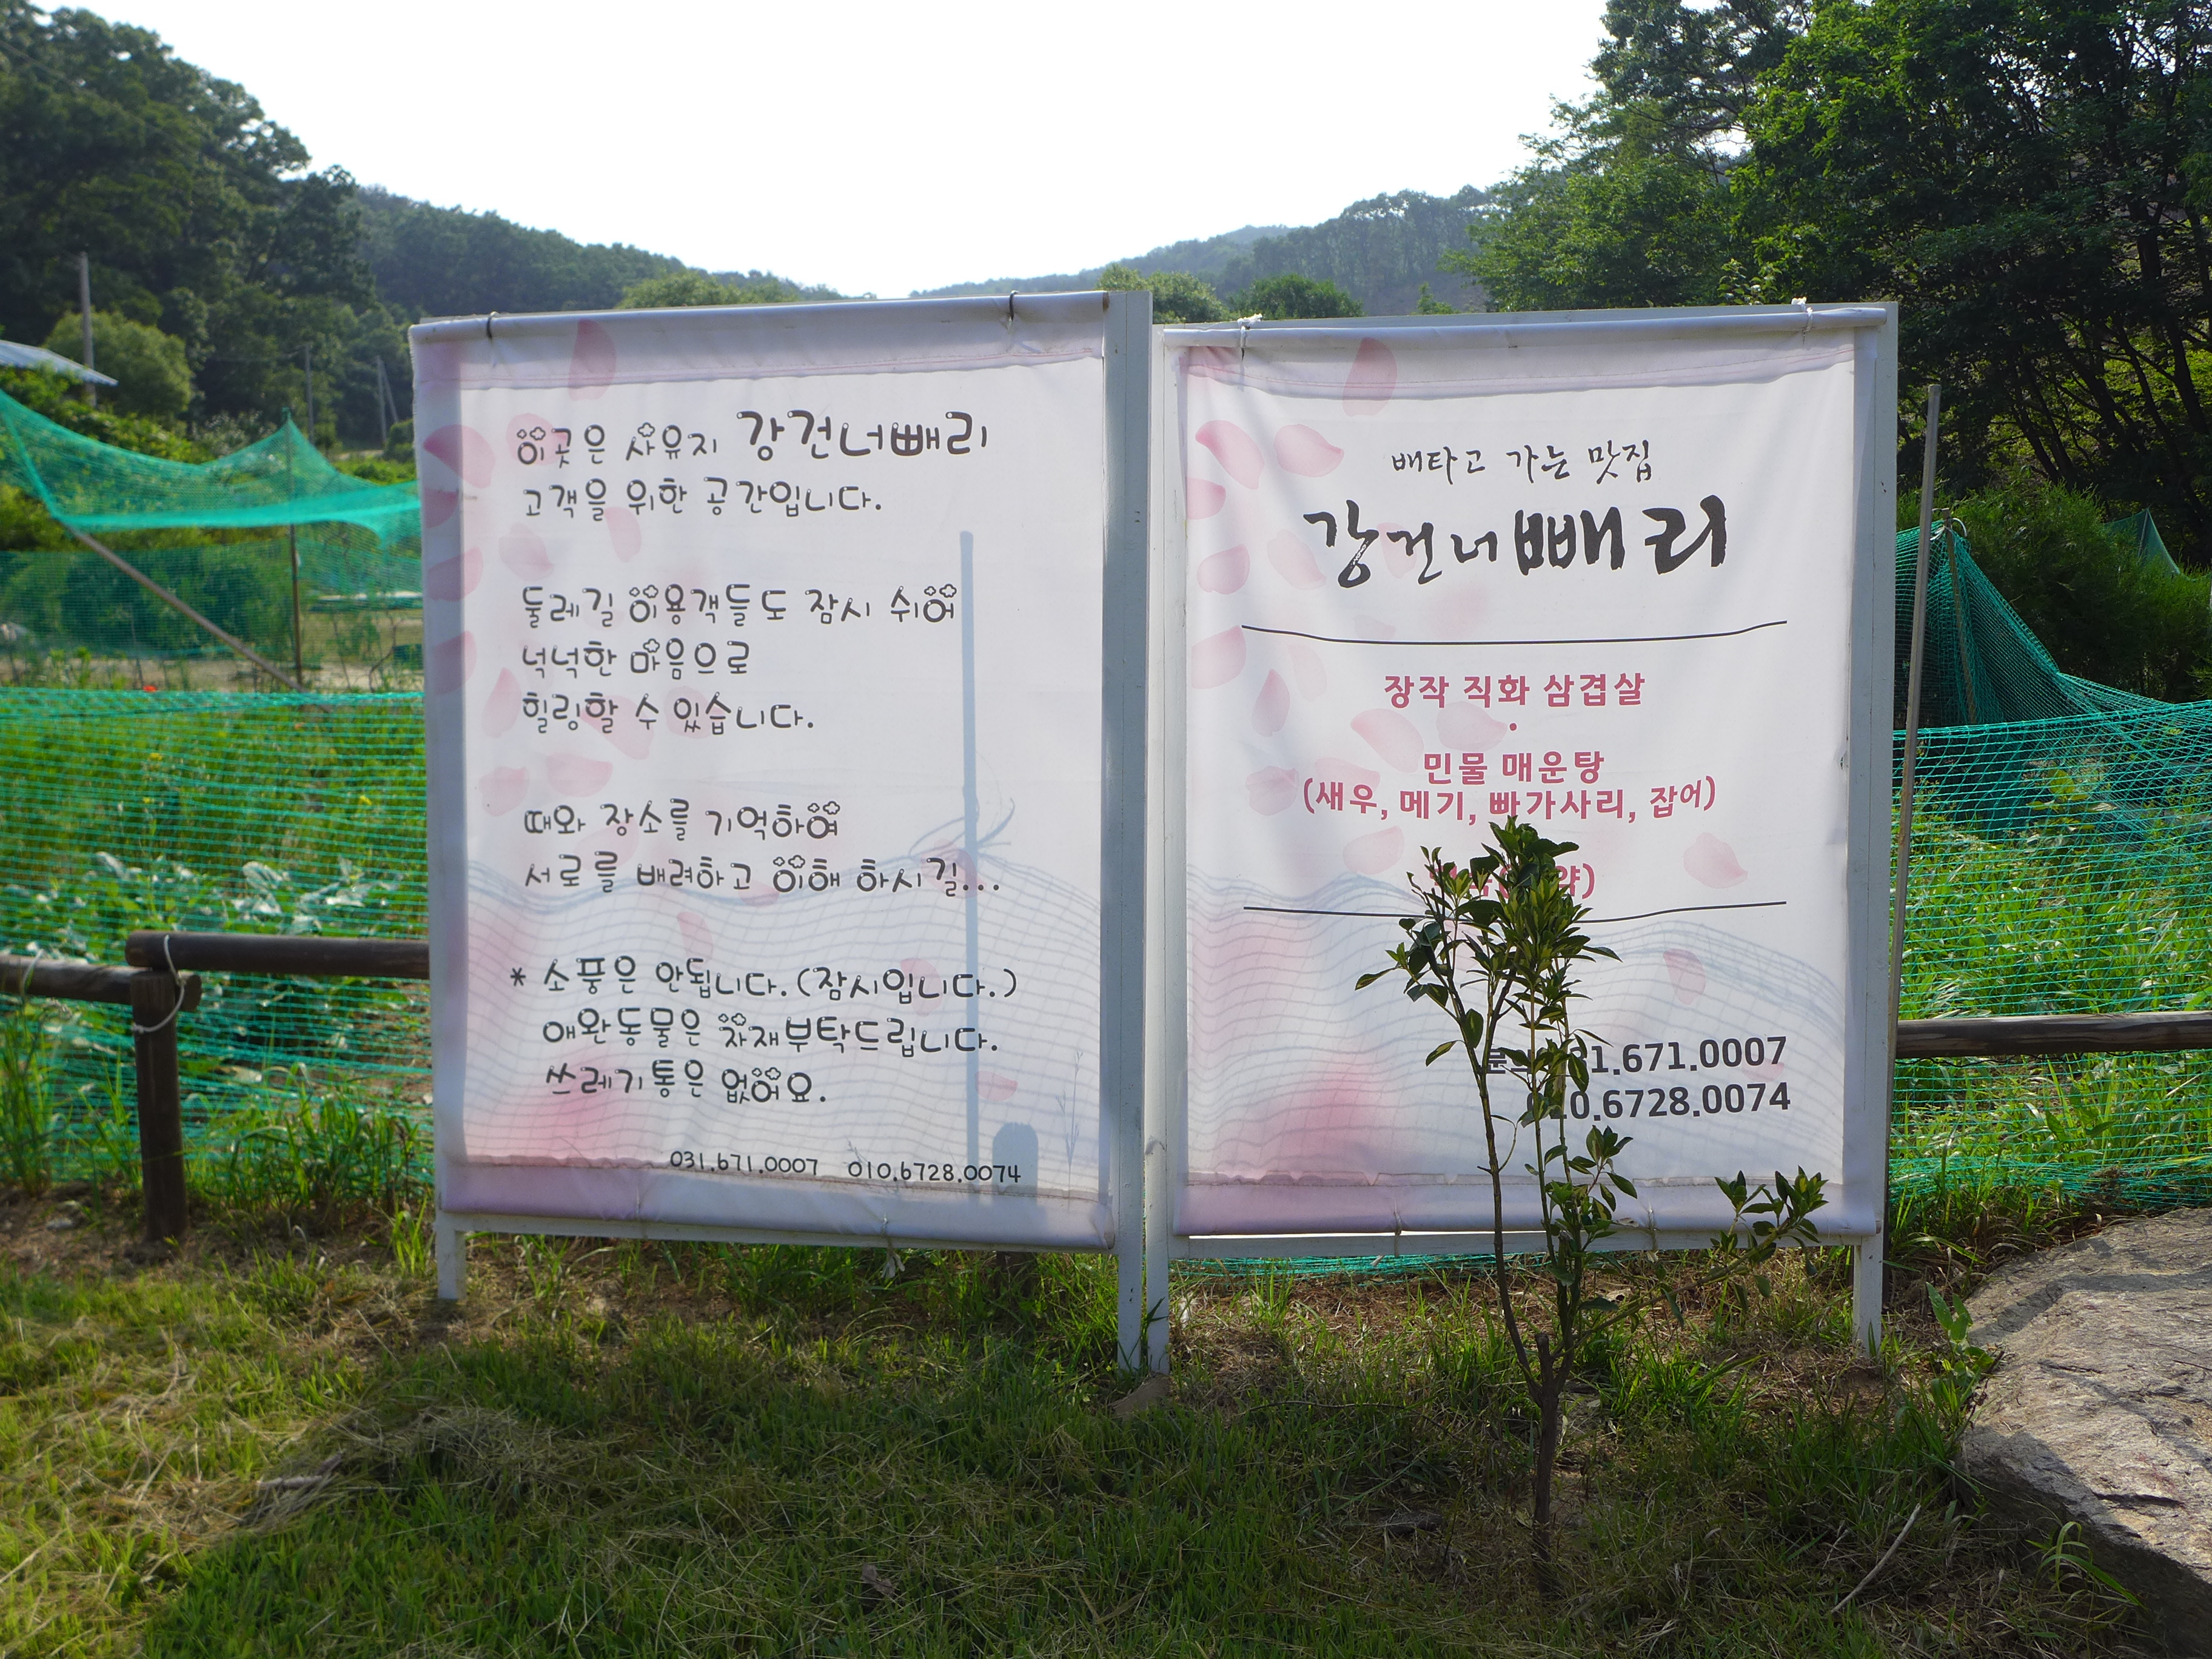 이곳은 사유지 강건너빼리
고객을 위한 공간입니다.
둘레길 이용객들도 잠시 쉬어
넉넉한 마음으로
힐링할 수 있습니다.
때와 장소를 기억하여
서로를 배려하고 이해 하시길...
* 소풍은 안됩니다.(잠시입니다.)
애완동물은 자재부탁드립니다.
쓰레기통은 없어요.
031.671.0007 010.6728.0074
배타고 가는 맛집
강건너빼리
장작 직화 삼겹살
·
민물 매운탕
(새우, 메기, 빠가사리, 잡어)
31.671.0007
010.6728.0074